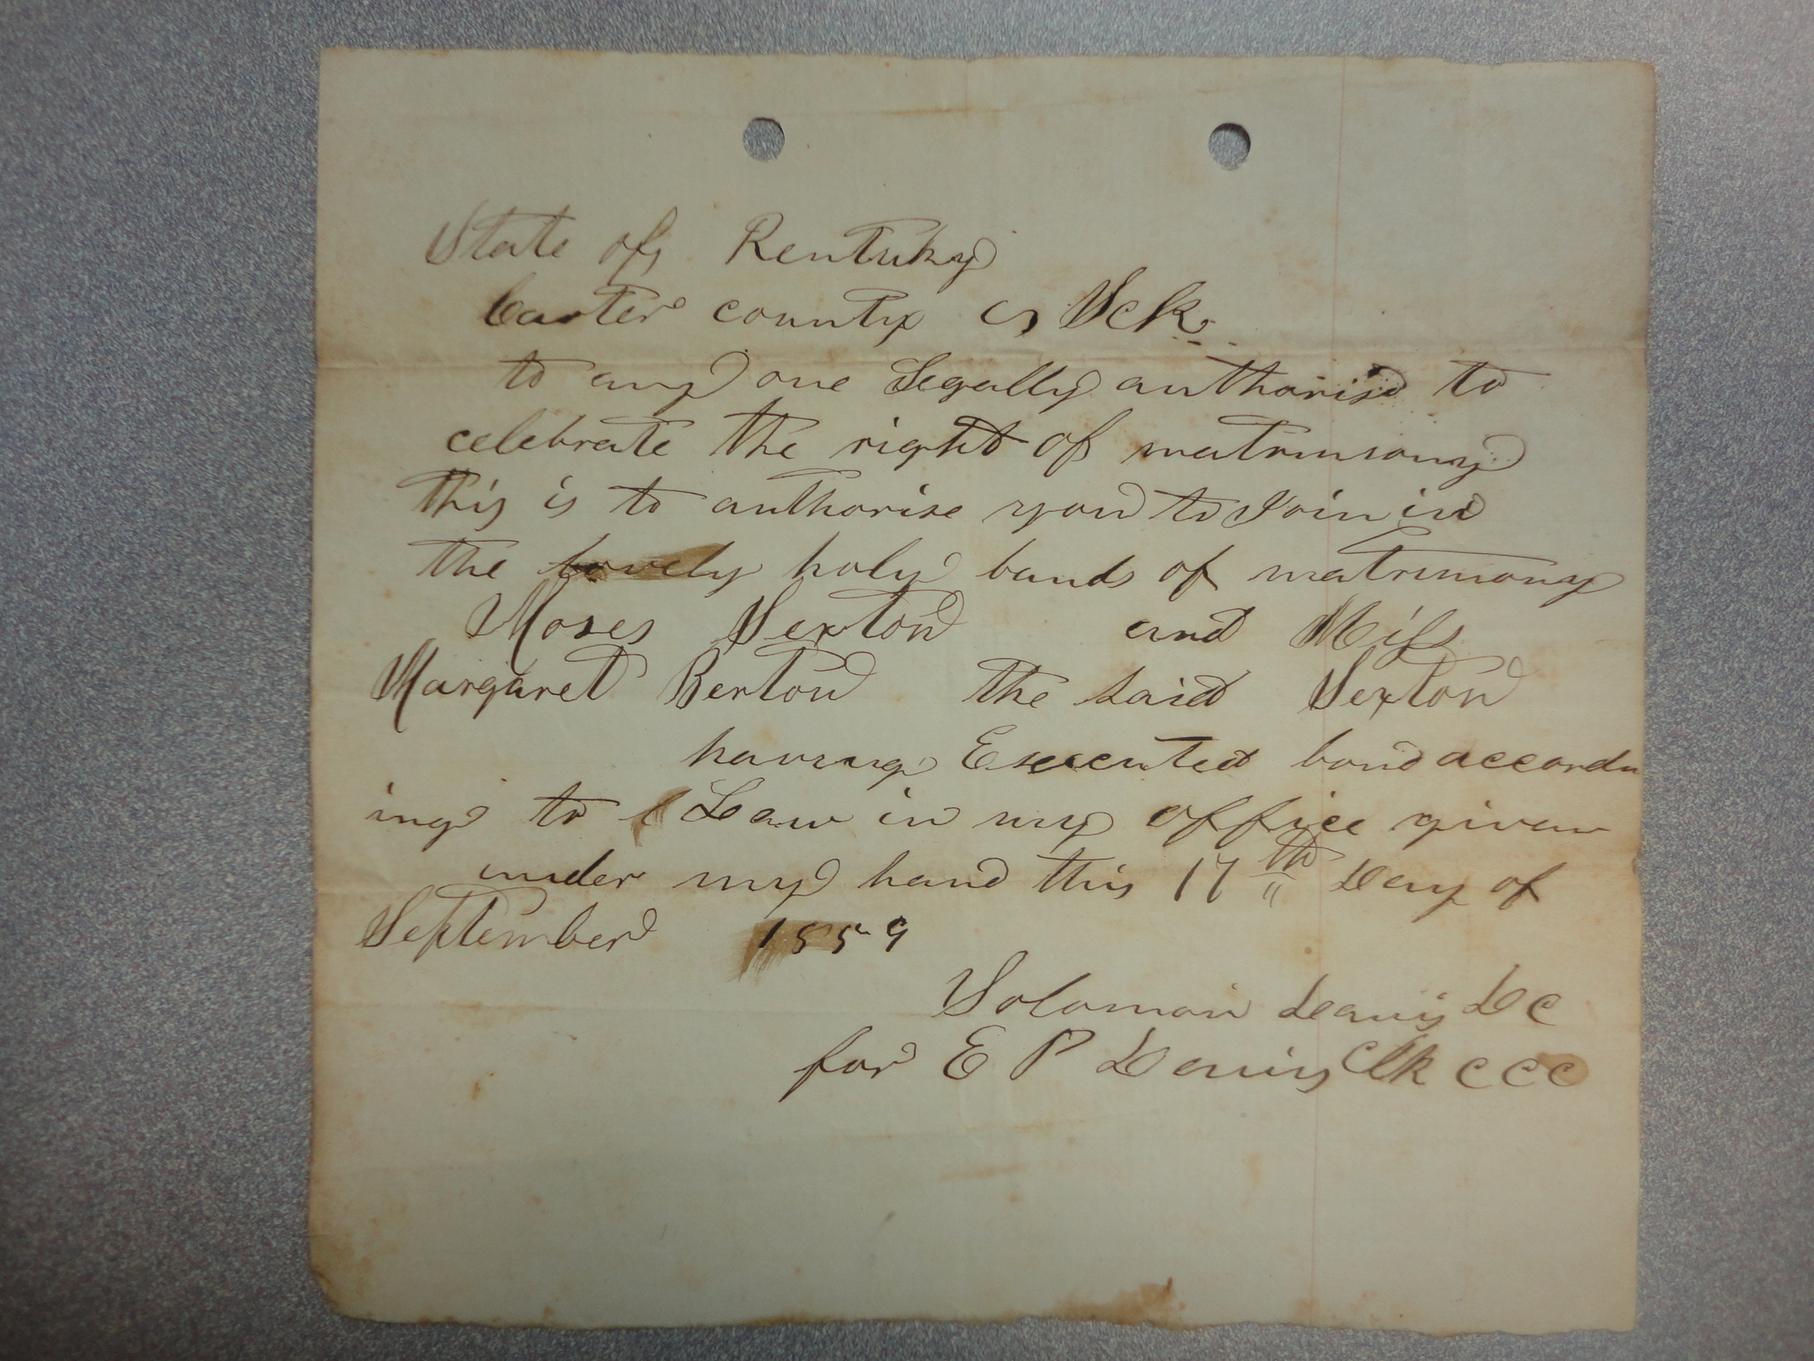 State of Kentuky
Carter county Sck
to any one Legally authorised to
celebrate the right of matrimony
this is to authorise you to Join in
the lovely holy bands of matrimony
Moses Sexton and Miss
Margaret Berton the said Sexton
having Executed bond accord
ing to Law in my office given
under my hand this 17th Day of
September 1859
Solomon Davis DC
for E P Davis Clk CCC